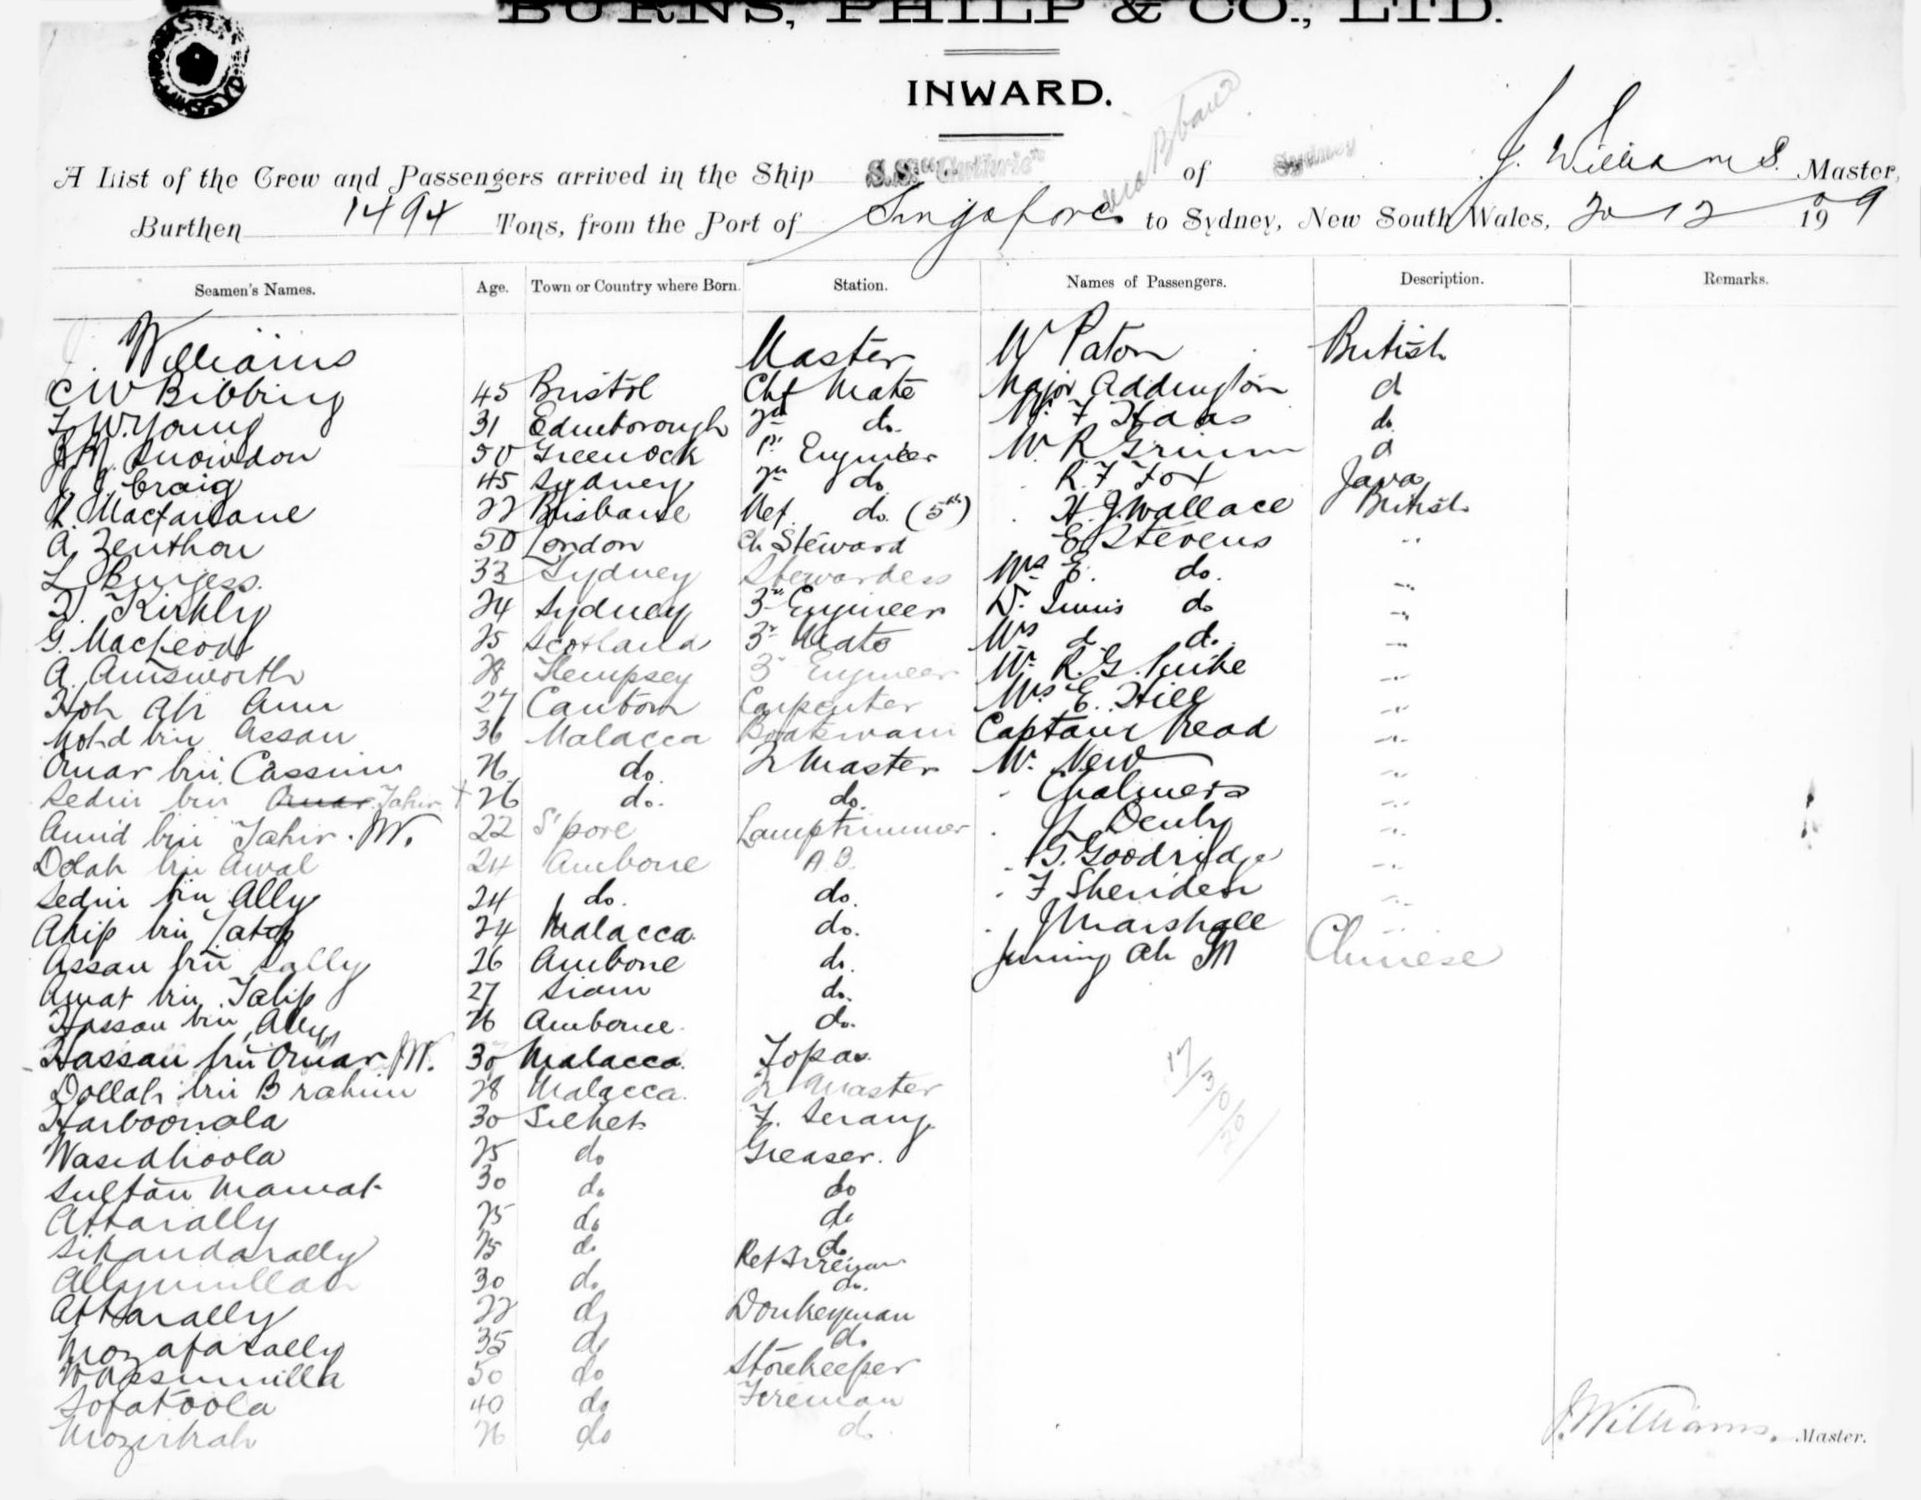 BURNS, PHILP & CO., LTD.
INWARD.
A List of the Crew and Passengers arrived in the Ship S.S. "Guthrie" of Sydney J. Williams Master,
Burthen 1494 Tons, from the Port of Singapore to Sydney, New South Wales, 20 12 1909
Seamen's Names. Age. Town or Country where Born. Station. Names of Passengers. Description. Remarks.
J. Williams Master Mr Paton British
C W Bibbing 45 Bristol Chf Mate Major Addington d
F. W. Young 31 Edinborough 2nd do. Mr. F Haas do
J. M. Snowdon 50 Greenock 1st Engineer Mr R Grimm d
J. J. Craig 45 Sydney 2nd do. R. F Fox Java
R. Macfarlane 22 Brisbane Ref. do. (5th) H. J. Wallace British
A. Zenthon 50 London Ch Steward E. Stevens "
L. Burgess. 33 Sydney Stewardess Mrs E. do. "
D. Kirkly 24 Sydney 3rd Engineer do "
G. MacLeod 25 Scotland 3rd Mate Ms d do. "
A. Ainsworth 28 Kempsey 3rd Engineer Mr. R. G. "
Hoh Ah Ann 27 Canton Carpenter Mrs E. Hill "
Mohd bin Assan 36 Malacca Boatswain Captain Read "
Omar bin Cassim 26 do. Qr Master Mr. New "
Sedin bin Omar Tahir + 26 do. do. " Chalmers "
Amid bin Tahir. JW. 22 S'pore Lamptrimmer " Denby "
Dolah bin Awal 24 Ambone A B. " G. Goodridge "
Sedin bin Ally 24 do. do. " F Sheriden "
Ahip bin 24 Malacca. do. " J Marshall "
Assan bin Sally 26 Ambone do. Ah Chinese
Amat bin Talip 27 Siam do.
Hassan bin Ally 26 Ambone. do.
Hassan bin Omar JW. 30 Malacca. Topas.
Dollah bin Brahim 28 Malacca. Qr Master
Harboonala 30 Silhet F. Serang.
Wasidhoola 25 do Greaser.
Sultan Mamat 30 do do
Attarally 25 do do
Sikandarally 25 do do
Allymullah 30 do. Ref Fireman
do.
Attarally 22 do Donkeyman
Mozafarally 35 do do.
50 do Storekeeper
Sofatoola 40 do Fireman
Mozirkah 26 do do.
17/3/0/20
J. Williams. Master.